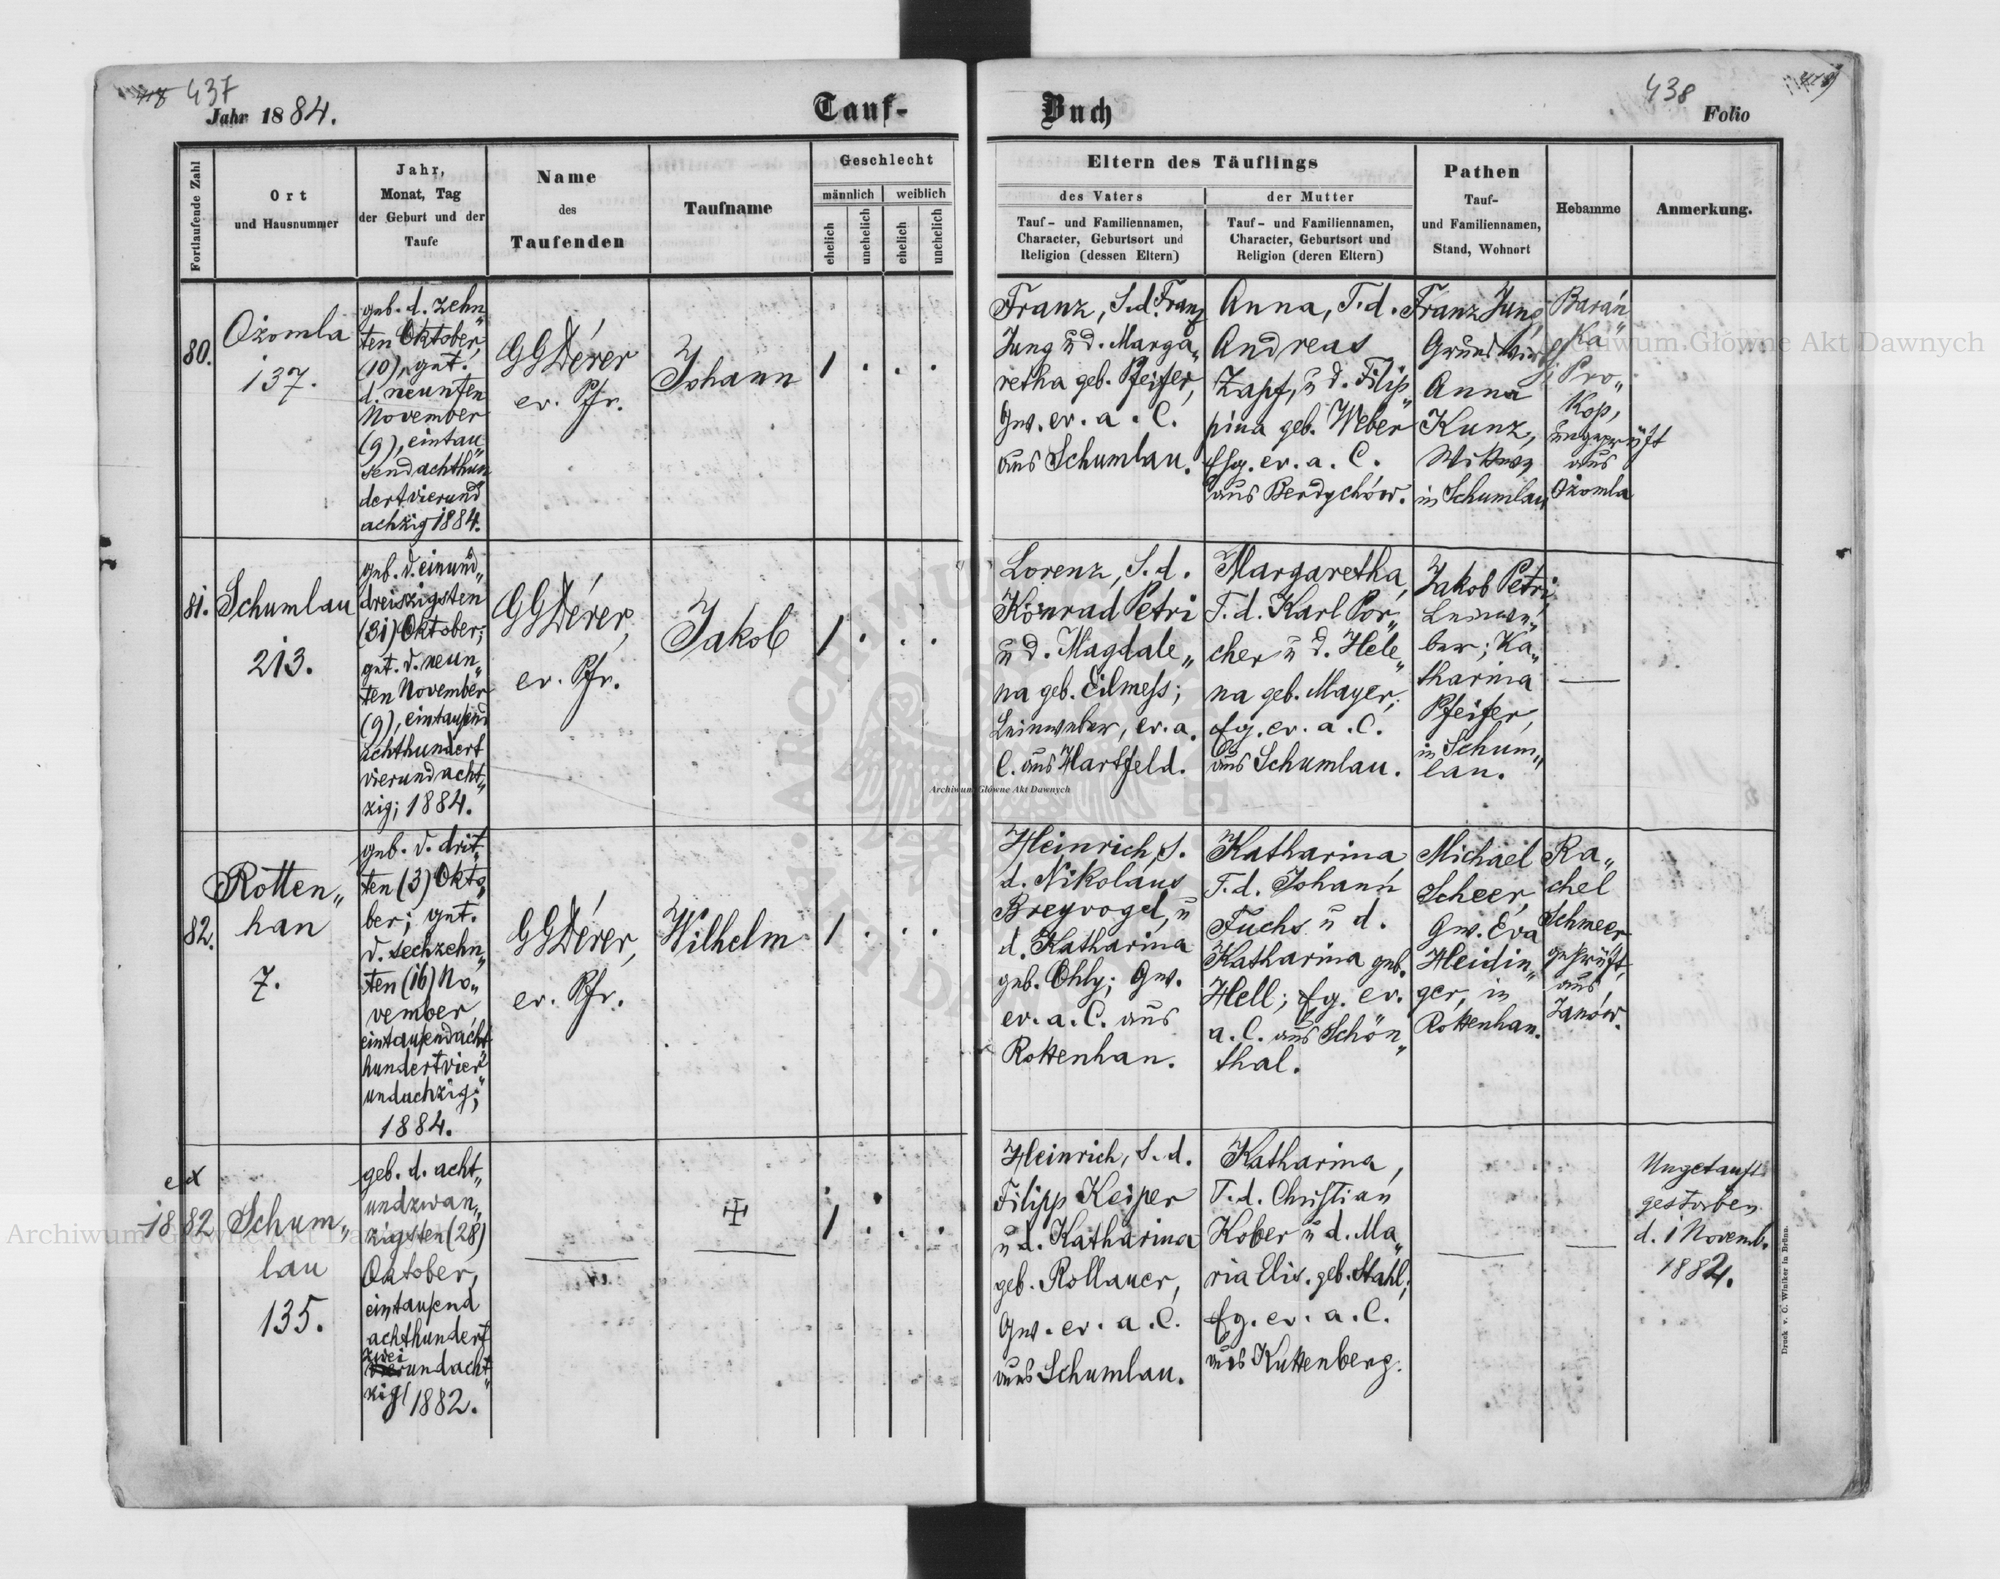 437
Jahr 1884.
Tauf-
Buch
438
Folio
Fortlaufende Zahl
Ort
und Hausnummer
Jahr,
Monat, Tag
der Geburt und der
Taufe
Name
des
Taufenden
Taufname
Geschlecht
männlich
weiblich
ehelich
unehelich
ehelich
unehelich
Eltern des Täuflings
des Vaters
Tauf- und Familiennamen,
Character, Geburtsort und
Religion (dessen Eltern)
der Mutter
Tauf- und Familiennamen,
Character, Geburtsort und
Religion (deren Eltern)
Pathen
Tauf-
und Familiennamen,
Stand, Wohnort
Hebamme
Anmerkung.
80.
Ożomla
137.
geb. d. zehn„
ten Oktober,
(10), get.
d. neunten
November
(9), eintau„
sendachthun
dertvierund
achzig 1884.
GGDérer
ev. Pfr.
Johann
1 . . .
Franz, S.d. Franz
Jung u d. Marga„
retha geb. Pfeifer,
Gw. ev. a. C.
aus Schumlau.
Anna, T.d.
Andreas
Zapf, u d. Filip„
pina geb. Weber
ev. a. C.
aus Berdychów.
Franz Jung,
Grundwirth;
Anna
Kunz,
Witwe
in Schumlau
Barán
Ka
Pro„
kop,
ungeprüft
aus
Ożomla
81.
Schumlau
213.
geb. d. einund„
dreiszigsten
(31) Oktober;
get. d. neun„
ten November
(9), eintausend
achthundert
vierundacht„
zig; 1884.
GGDérer,
ev. Pfr.
Jakob
1 . . .
Lorenz, S.d.
Konrad Petri
u d. Magdale„
na geb. Eilmess;
Leinweber, ev. a.
C. aus Hartfeld.
Margaretha,
T.d. Karl Por„
cher u d. Hele„
na geb. Mayer,
Eg. ev. a. C.
aus Schumlau.
Jakob Petri,
Leinwe„
ber; Ka„
tharina
Pfeifer,
in Schum„
lau.
82.
Rotten„
han
7.
geb. d. drit„
ten (3) Okto„
ber; get.
d. sechzehn„
ten (16) No„
vember
eintausendacht
hundertvier„
undachzig;
1884.
GGDérer,
ev. Pfr.
Wilhelm
1 . . .
Heinrich, S.
d. Nikolaus
Breyvogel, u
d. Katharina
geb. Ohly; Gw.
ev. a. C. aus
Rottenhan.
Katharina
T.d. Johann
Fuchs u d.
Katharina geb.
Hell; Eg. ev.
a. C. aus Schön„
thal.
Michael
Scheer,
Gw. Eva
Heidin„
ger, in
Rottenhan.
Ra„
chel
Schneer
geprüft,
aus
Janów.
ex
1882
Schum„
lau
135.
geb. d. acht„
undzwan„
zigsten (28)
Oktober,
eintausend
achthundert
zwei
undacht„
zig 1882.
1 . . .
Heinrich, S.d.
Filipp Keiper
u d. Katharina
geb. Rollauer,
Gw. ev. a. C.
aus Schumlau.
Katharina,
T.d. Christian
Kober u d. Ma„
ria Elis. geb. Stahl;
Eg. ev. a. C.
aus Kuttenberg.
Ungetauft
gestorben
d. 1 Novemb.
1882.
Druck v. C. Winiker in Brünn.
Archiwum Główne Akt Dawnych
Archiwum Główne Akt Dawnych
Archiwum Główne Akt Dawnych